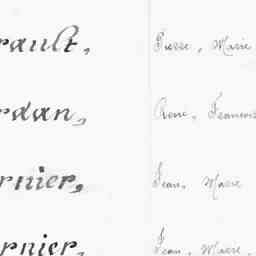 rault, Pierre, Marie
rdan, René, François
rnier, Jean, Marie
rnier, Jean, Marie,